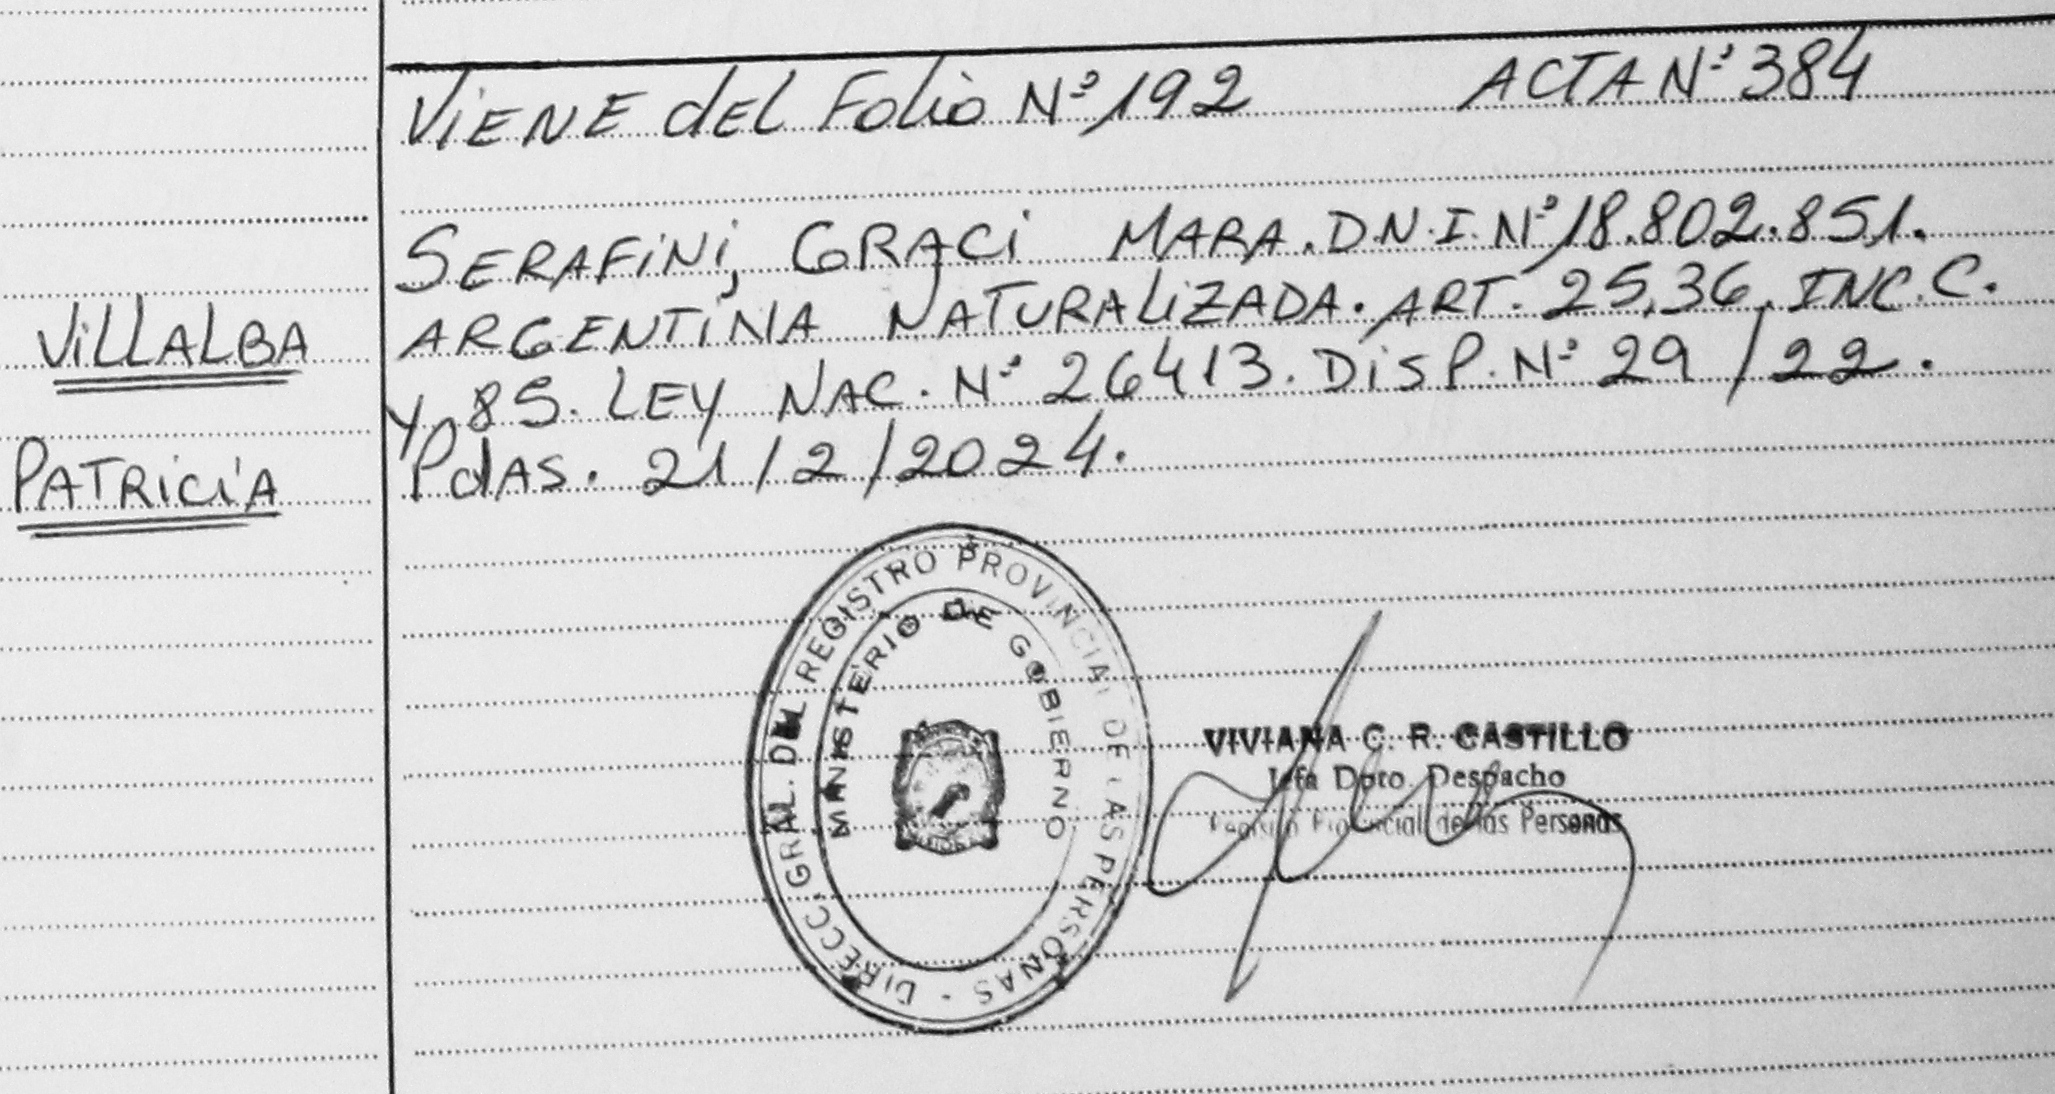 VIENE dEL FoLio Nº 192 ACTA Nº 384
SERAFINI, GRACI MARA. D.N.I. Nº 18.802.851.
ARGENTINA NATURALIZADA. ART. 25,36, INC. C.
y 85. LEY NAC. Nº 26413. DISP. Nº 29/22.
PdAS. 21/2/2024.
VILLALBA
PATRICIA
DIRECC. GRAL. DEL REGISTRO PROVINCIAL DE LAS PERSONAS -
MINISTERIO DE GOBIERNO
VIVIANA C. R. CASTILLO
Jefa Dpto. Despacho
Registro Provincial de las Personas